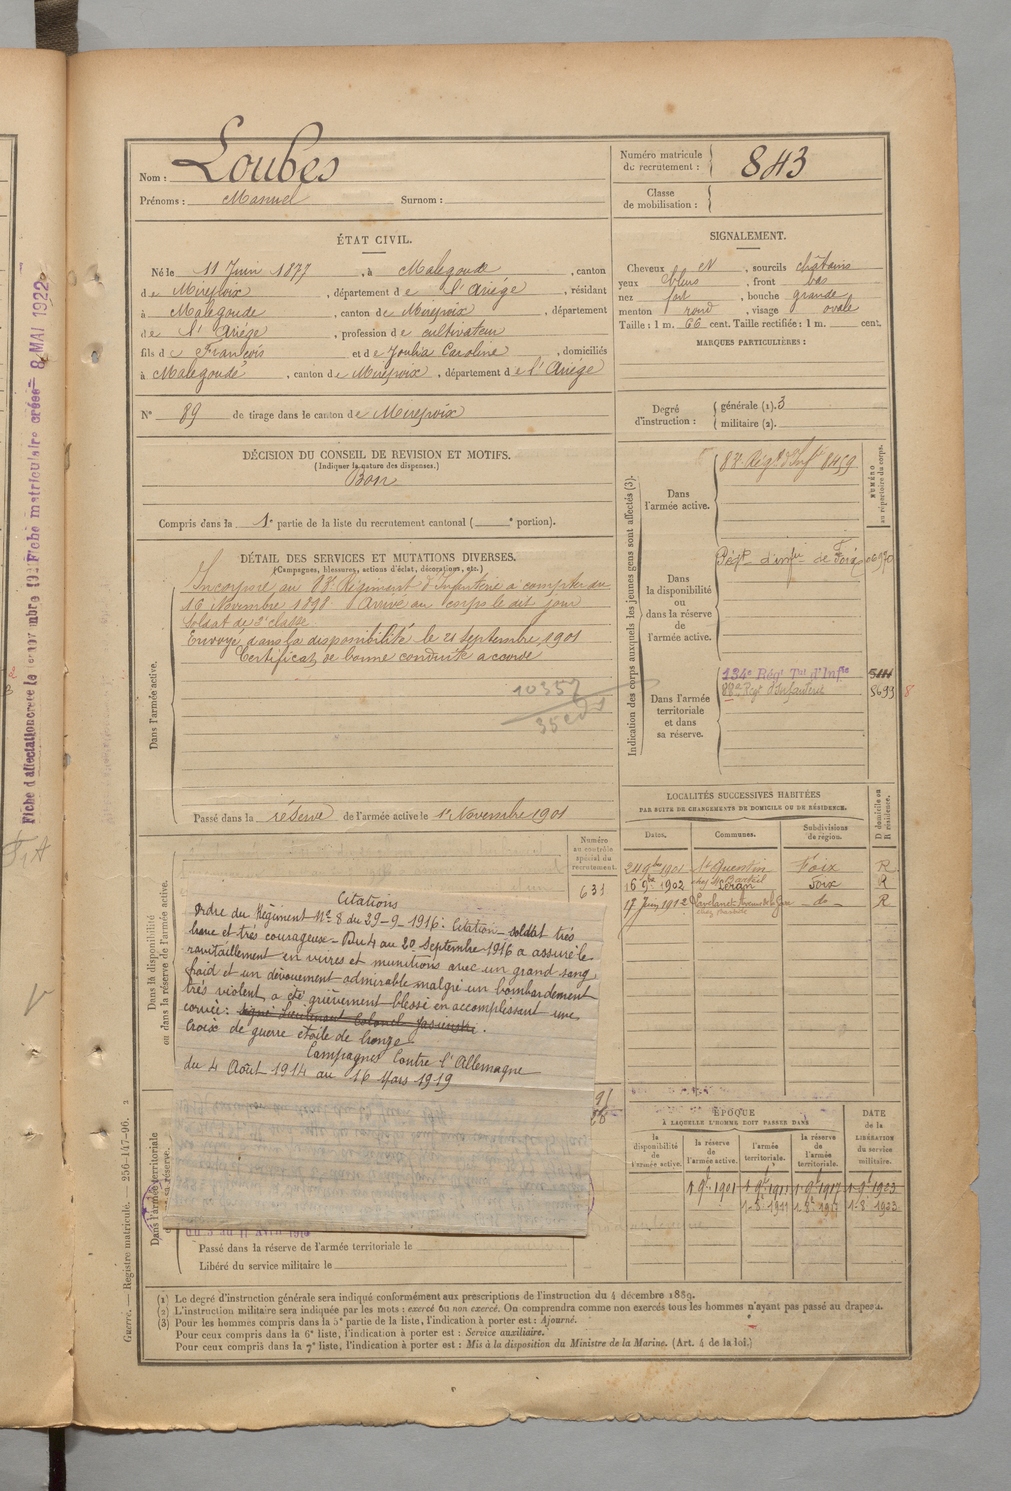 Nom : Loubes
Prénoms : Manuel Surnom :
Numéro matricule de recrutement : 843
Classe de mobilisation :
ÉTAT CIVIL.
Né le 11 Juin 1877, à Malegoude, canton
de Mirepoix, département de l'Ariége, résidant
à Malegoude, canton de Mirepoix, département
de l'Ariége, profession de cultivateur
fils de François et de Caroline, domiciliés
à Malegoude, canton de Mirepoix, département de l'Ariége
N° 89 de tirage dans le canton de Mirepoix
SIGNALEMENT.
Cheveux N, sourcils châtains
yeux bleus, front bas
nez fort, bouche grande
menton rond, visage ovale
Taille : 1 m. 66 cent. Taille rectifiée : 1 m. cent.
MARQUES PARTICULIÈRES :
Degré d'instruction : générale (1). 3
militaire (2).
DÉCISION DU CONSEIL DE REVISION ET MOTIFS.
(Indiquer la nature des dispenses.)
Bon
Compris dans la 1e partie de la liste du recrutement cantonal ( e portion).
DÉTAIL DES SERVICES ET MUTATIONS DIVERSES.
(Campagnes, blessures, actions d'éclat, décorations, etc.)
Dans l'armée active.
Incorporé au 88e Régiment d'Infanterie à compter du
16 Novembre 1898 Arrivé au corps le dit jour
Soldat de 2e classe
Envoyé dans la disponibilité le 21 septembre 1901
Certificat de bonne conduite accordé
10357
35
Passé dans la réserve de l'armée active le 1er Novembre 1901
Indication des corps auxquels les jeunes gens sont affectés (3).
NUMÉRO au répertoire du corps.
Dans l'armée active.
88e Régt d'Inft 8459
Dans la disponibilité ou dans la réserve de l'armée active.
Régt d'infie de Foix 06970
Dans l'armée territoriale et dans sa réserve.
134e Régt Tal d'Infie
88e Régt d'Infanterie 8693
LOCALITÉS SUCCESSIVES HABITÉES
PAR SUITE DE CHANGEMENTS DE DOMICILE OU DE RÉSIDENCE.
Dates. Communes. Subdivisions de région. D domicile ou R résidence.
24 9bre 1901 St Quentin Foix R
16 9bre 1902 Léran Foix R
17 Juin 1912 Lavelanet do R
Dans la disponibilité ou dans la réserve de l'armée active.
Numéro au contrôle spécial du recrutement.
631
Citations
Ordre du Régiment No 8 du 29-9-1916: Citation - soldat très
brave et très courageux - Du 4 au 20 Septembre 1916 a assuré le
ravitaillement en vivres et munitions avec un grand sang
froid et un dévouement admirable malgré un bombardement
très violent, a été grièvement blessé en accomplissant une
corvée: signé Lieutenant Colonel .
Croix de guerre étoile de bronze
Campagnes Contre l'Allemagne
du 4 Août 1914 au 16 Mars 1919
Dans l'armée territoriale et dans sa réserve.
Passé dans la réserve de l'armée territoriale le
Libéré du service militaire le
ÉPOQUE
À LAQUELLE L'HOMME DOIT PASSER DANS
la disponibilité de l'armée active. la réserve de l'armée active. l'armée territoriale. la réserve de l'armée territoriale. DATE de la LIBÉRATION du service militaire.
1 9e 1901 1 9e 1911 1 9e 1917 1 9e 1923
1-8e 1911 1 8e 1917 1-8e 1923
(1) Le degré d'instruction générale sera indiqué conformément aux prescriptions de l'instruction du 4 décembre 1889.
(2) L'instruction militaire sera indiquée par les mots : exercé ou non exercé. On comprendra comme non exercés tous les hommes n'ayant pas passé au drapeau.
(3) Pour les hommes compris dans la 5e partie de la liste, l'indication à porter est : Ajourné.
Pour ceux compris dans la 6e liste, l'indication à porter est : Service auxiliaire.
Pour ceux compris dans la 7e liste, l'indication à porter est : Mis à la disposition du Ministre de la Marine. (Art. 4 de la loi.)
Guerre. — Registre matricule. — 256-147-96. 2
Fiche matriculaire créée 8 MAI 1922